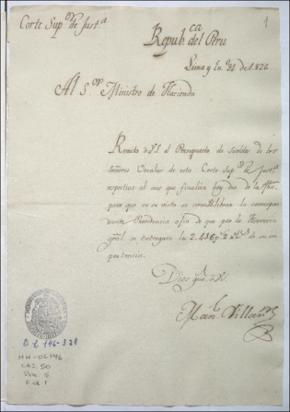 Corte Sup.ᵒʳ de Just.ª
1
Repub.ᶜᵃ del Peru
Lima y En.º 31 de 1826
Al S.ᵒʳ Ministro de Hacienda
Remito á V.S. el Presupuesto de sueldos de los
Señores Vocales de esta Corte Sup.ᵒʳ de Just.ª
respectivo al mes que finaliza hoy dia de la fha.
para que en su vista se
diente Providencia a fin de que por la Tesoreria
gral. se entreguen los 2.436 p.ˢ
Dios gue. á V.S.
Man.ˡ Villar
O.L. 146-321
MH-OL146
CAJ. 50
DOC. 5
Fol. 1